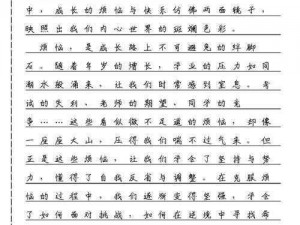 中，成长的烦恼与快乐仿佛两面镜子，
映照出我们内心世界的斑斓色彩。
烦恼，是成长路上不可避免的绊脚
石。随着年岁的增长，学业的压力如同
潮水般涌来，让我们时常感到窒息。考
试的失利、老师的期望、同学的竞
争……这些看似微不足道的烦恼，却像
一座座大山，压得我们喘不过气来。但
正是这些烦恼，让我们学会了坚持与努
力，懂得了自我反省与调整。在克服烦
恼的过程中，我们逐渐变得坚强，学会
了如何面对挑战，如何在逆境中寻找希